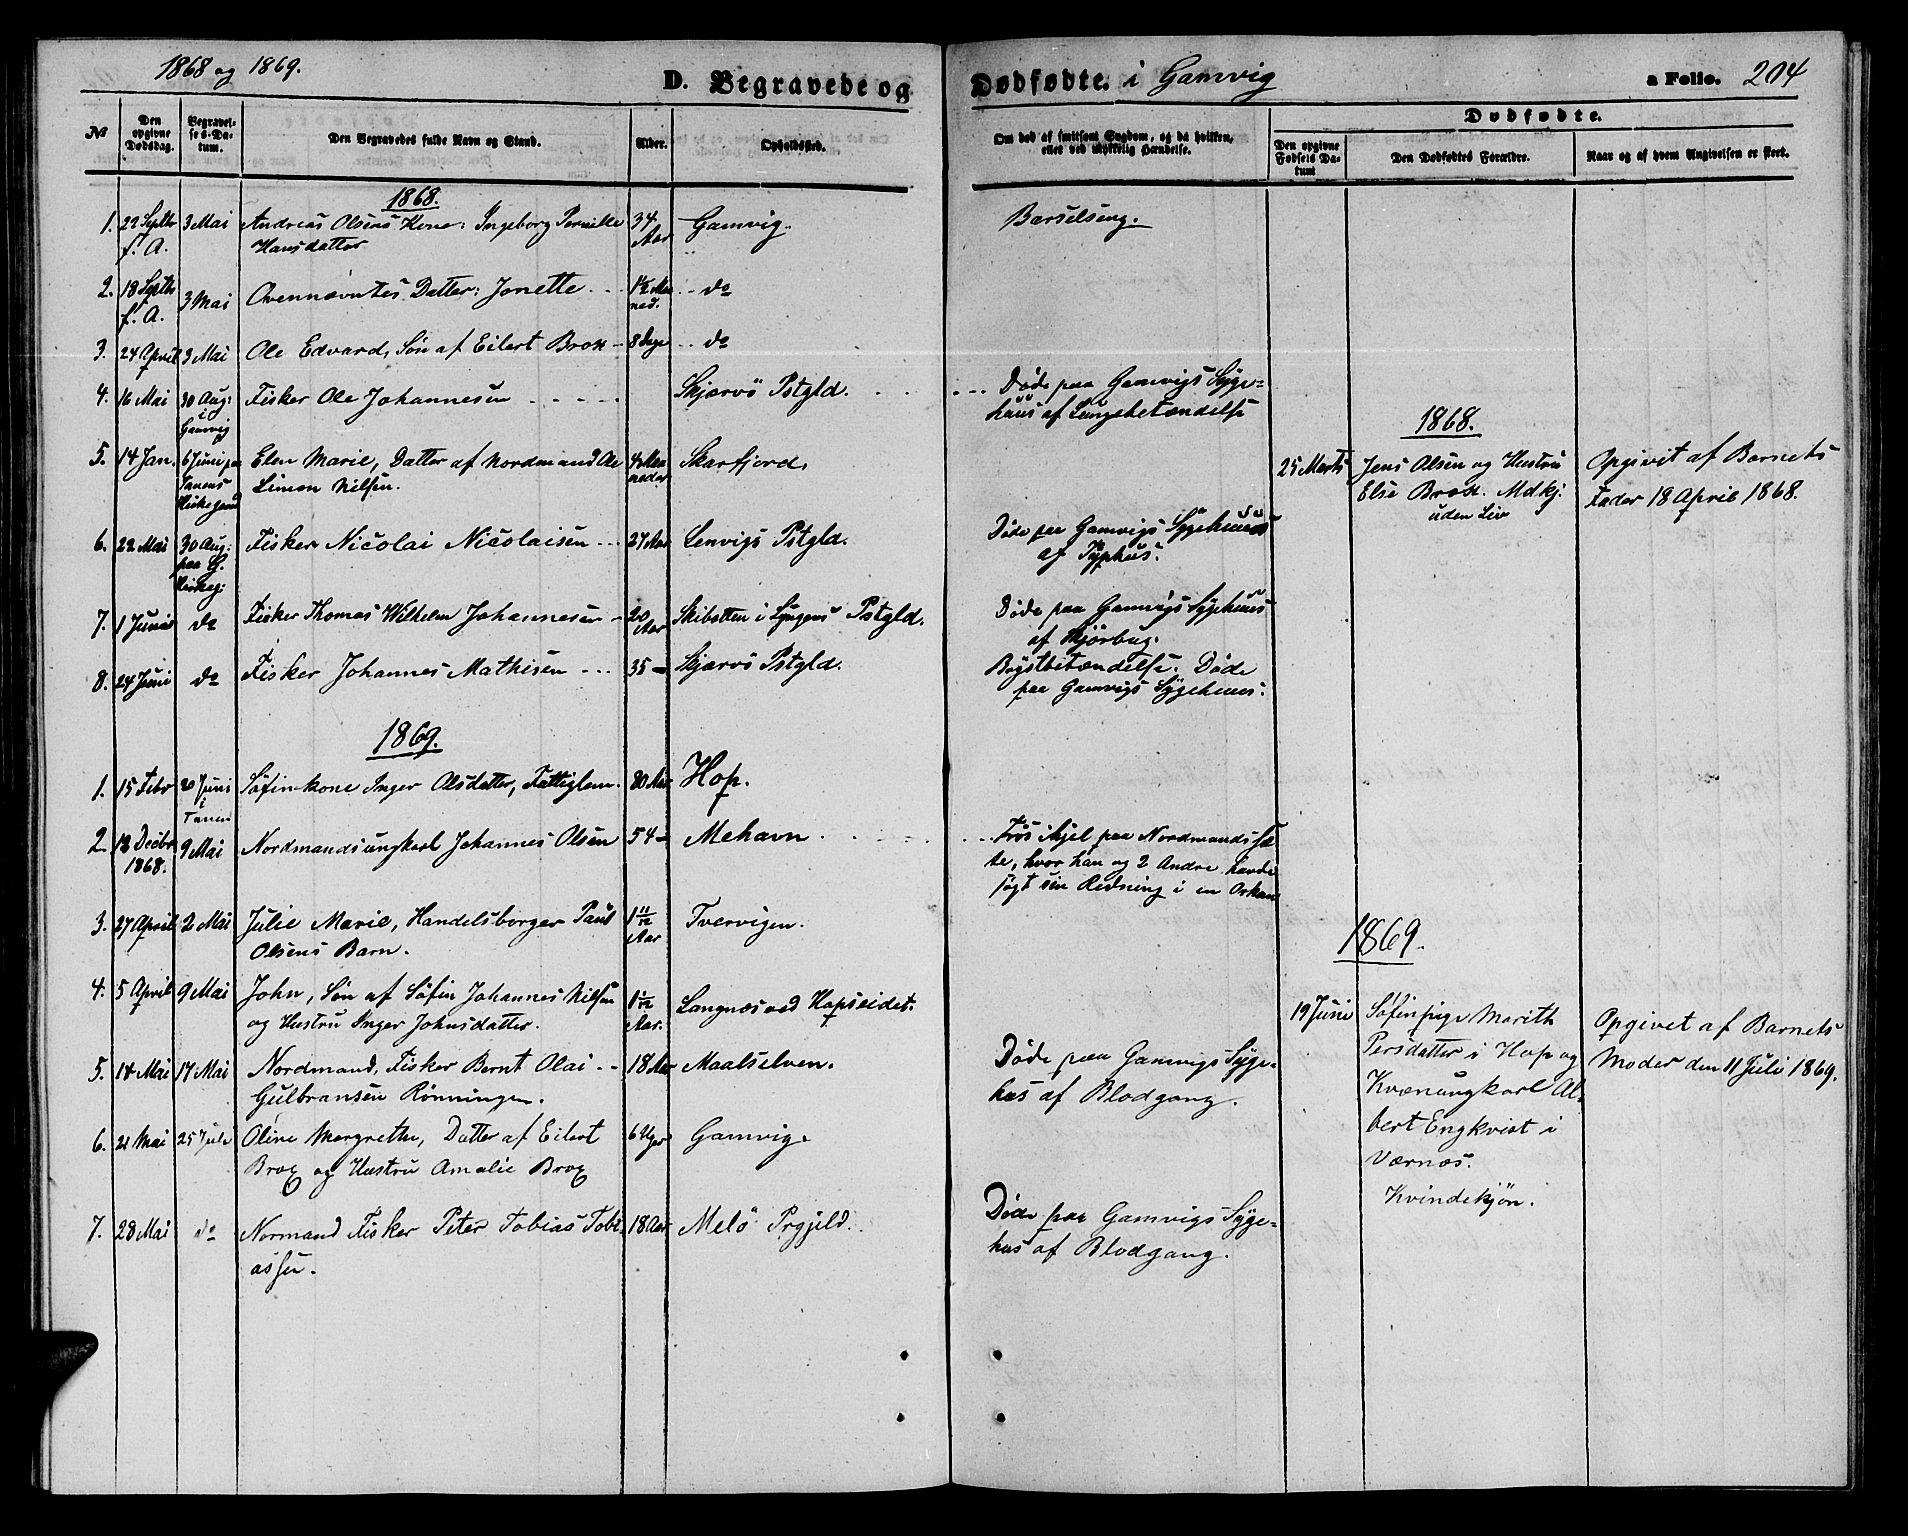 1868 og 1869.
D. Begravede og
Dødfødte. i Gamvig
a Folio. 204
№
Den opgivne Dødsdag.
Begravelses-Datum.
Den Begravedes fulde Navn og Stand.
Alder.
Opholdssted.
Om død af smitsom Sygdom, og da hvilken, eller ved ulykkelig Hændelse.
Dødfødte.
Den opgivne Fødsels Datum
Den Dødfødtes Forældre.
Naar og af hvem Angivelsen er skeet.
1868.
1. 22 Septbr 3 Mai Andreas Olsens Kone: Ingeborg Pernille 34 Gamvig. Barselseng.
f. A. Hansdatter Aar
2. 18 Septbr 3 Mai Ovennævntes Datter: Jonette 1½ Maa do
f. A. ned.
3. 24 April 3 Mai Ole Edvard, Søn af Eilert Brox 8 Dage do
4. 16 Mai 30 Aug: Fisker Ole Johannesen Skjærvö Pstgld. Døde paa Gamvigs Syge-
i Gamvig huus af Lungebetændelse
5. 14 Jan. 6 Juni paa Elen Marie, Datter af Nordmand Ole 4 Maa Skarfjord.
Tanens Kirkegaard Simon Nilsen. neder
6. 22 Mai 30 Aug: Fisker Nicolai Nicolaisen 27 Aar Lenvigs Pstgld. Døde paa Gamvigs Sygehuus
paa G. Kirkeg: af Typhus.
7. 1 Juni do Fisker Thomas Wilhelm Johannesen 20 Aar Skibotten i Lyngens Pstgld. Døde paa Gamvigs Sygehuus
af Skjörbug.
8. 24 Juni do Fisker Johannes Mathisen 35 Skjærvö Pstgld. Brystbetændelse. Døde
paa Gamvigs Sygehuus.
1868.
25 Marts Jens Olsen og Hustru Opgivet af Barnets
Else Brox. Mdkj. Fader 18 April 1868.
uden Liv
1869.
1. 15 Febr 20 Juni i Tanen Søfinkone Inger Olsdatter, Fattiglem 80 Aar Hop.
2. 18 Decbr 9 Mai Nordmandsungkarl Johannes Olsen 54 Mehavn Frøs ihjel paa Nordmandssæ
1868. te, hvor han og 2 Andre havde
søgt sin Redning i en Orkan
3. 27 April 2 Mai Julie Marie, Handelsborger Paul 1 11/12 Tvervigen.
Olsens Barn. Aar
4. 5 April 9 Mai John, Søn af Søfin Johannes Nilsen 1 1/12 Langnæs ved Hopseidet.
og Hustru Inger Johnsdatter. Aar.
5. 14 Mai 17 Mai Nordmand, Fisker Bernt Olai 18 Aar Maalselven. Døde paa Gamvigs Syge-
Gulbransen Rønningen. hus af Blodgang.
6. 21 Mai 25 Juli Oline Margrethe, Datter af Eilert 6 Uger Gamvig
Brox og Hustru Amalie Brox
7. 28 Mai do Normand Fisker Peter Tobias Tobi 18 Aar Melö Prgjeld. Døde paa Gamvigs Syge-
assen. hus af Blodgang.
1869.
19 Juni Søfinpige Marith Opgivet af Barnets
Persdatter i Hop og Moder den 11 Juli 1869.
Kvænungkarl Al-
bert Engkvist i
Værnæs.
Kvindekjøn.